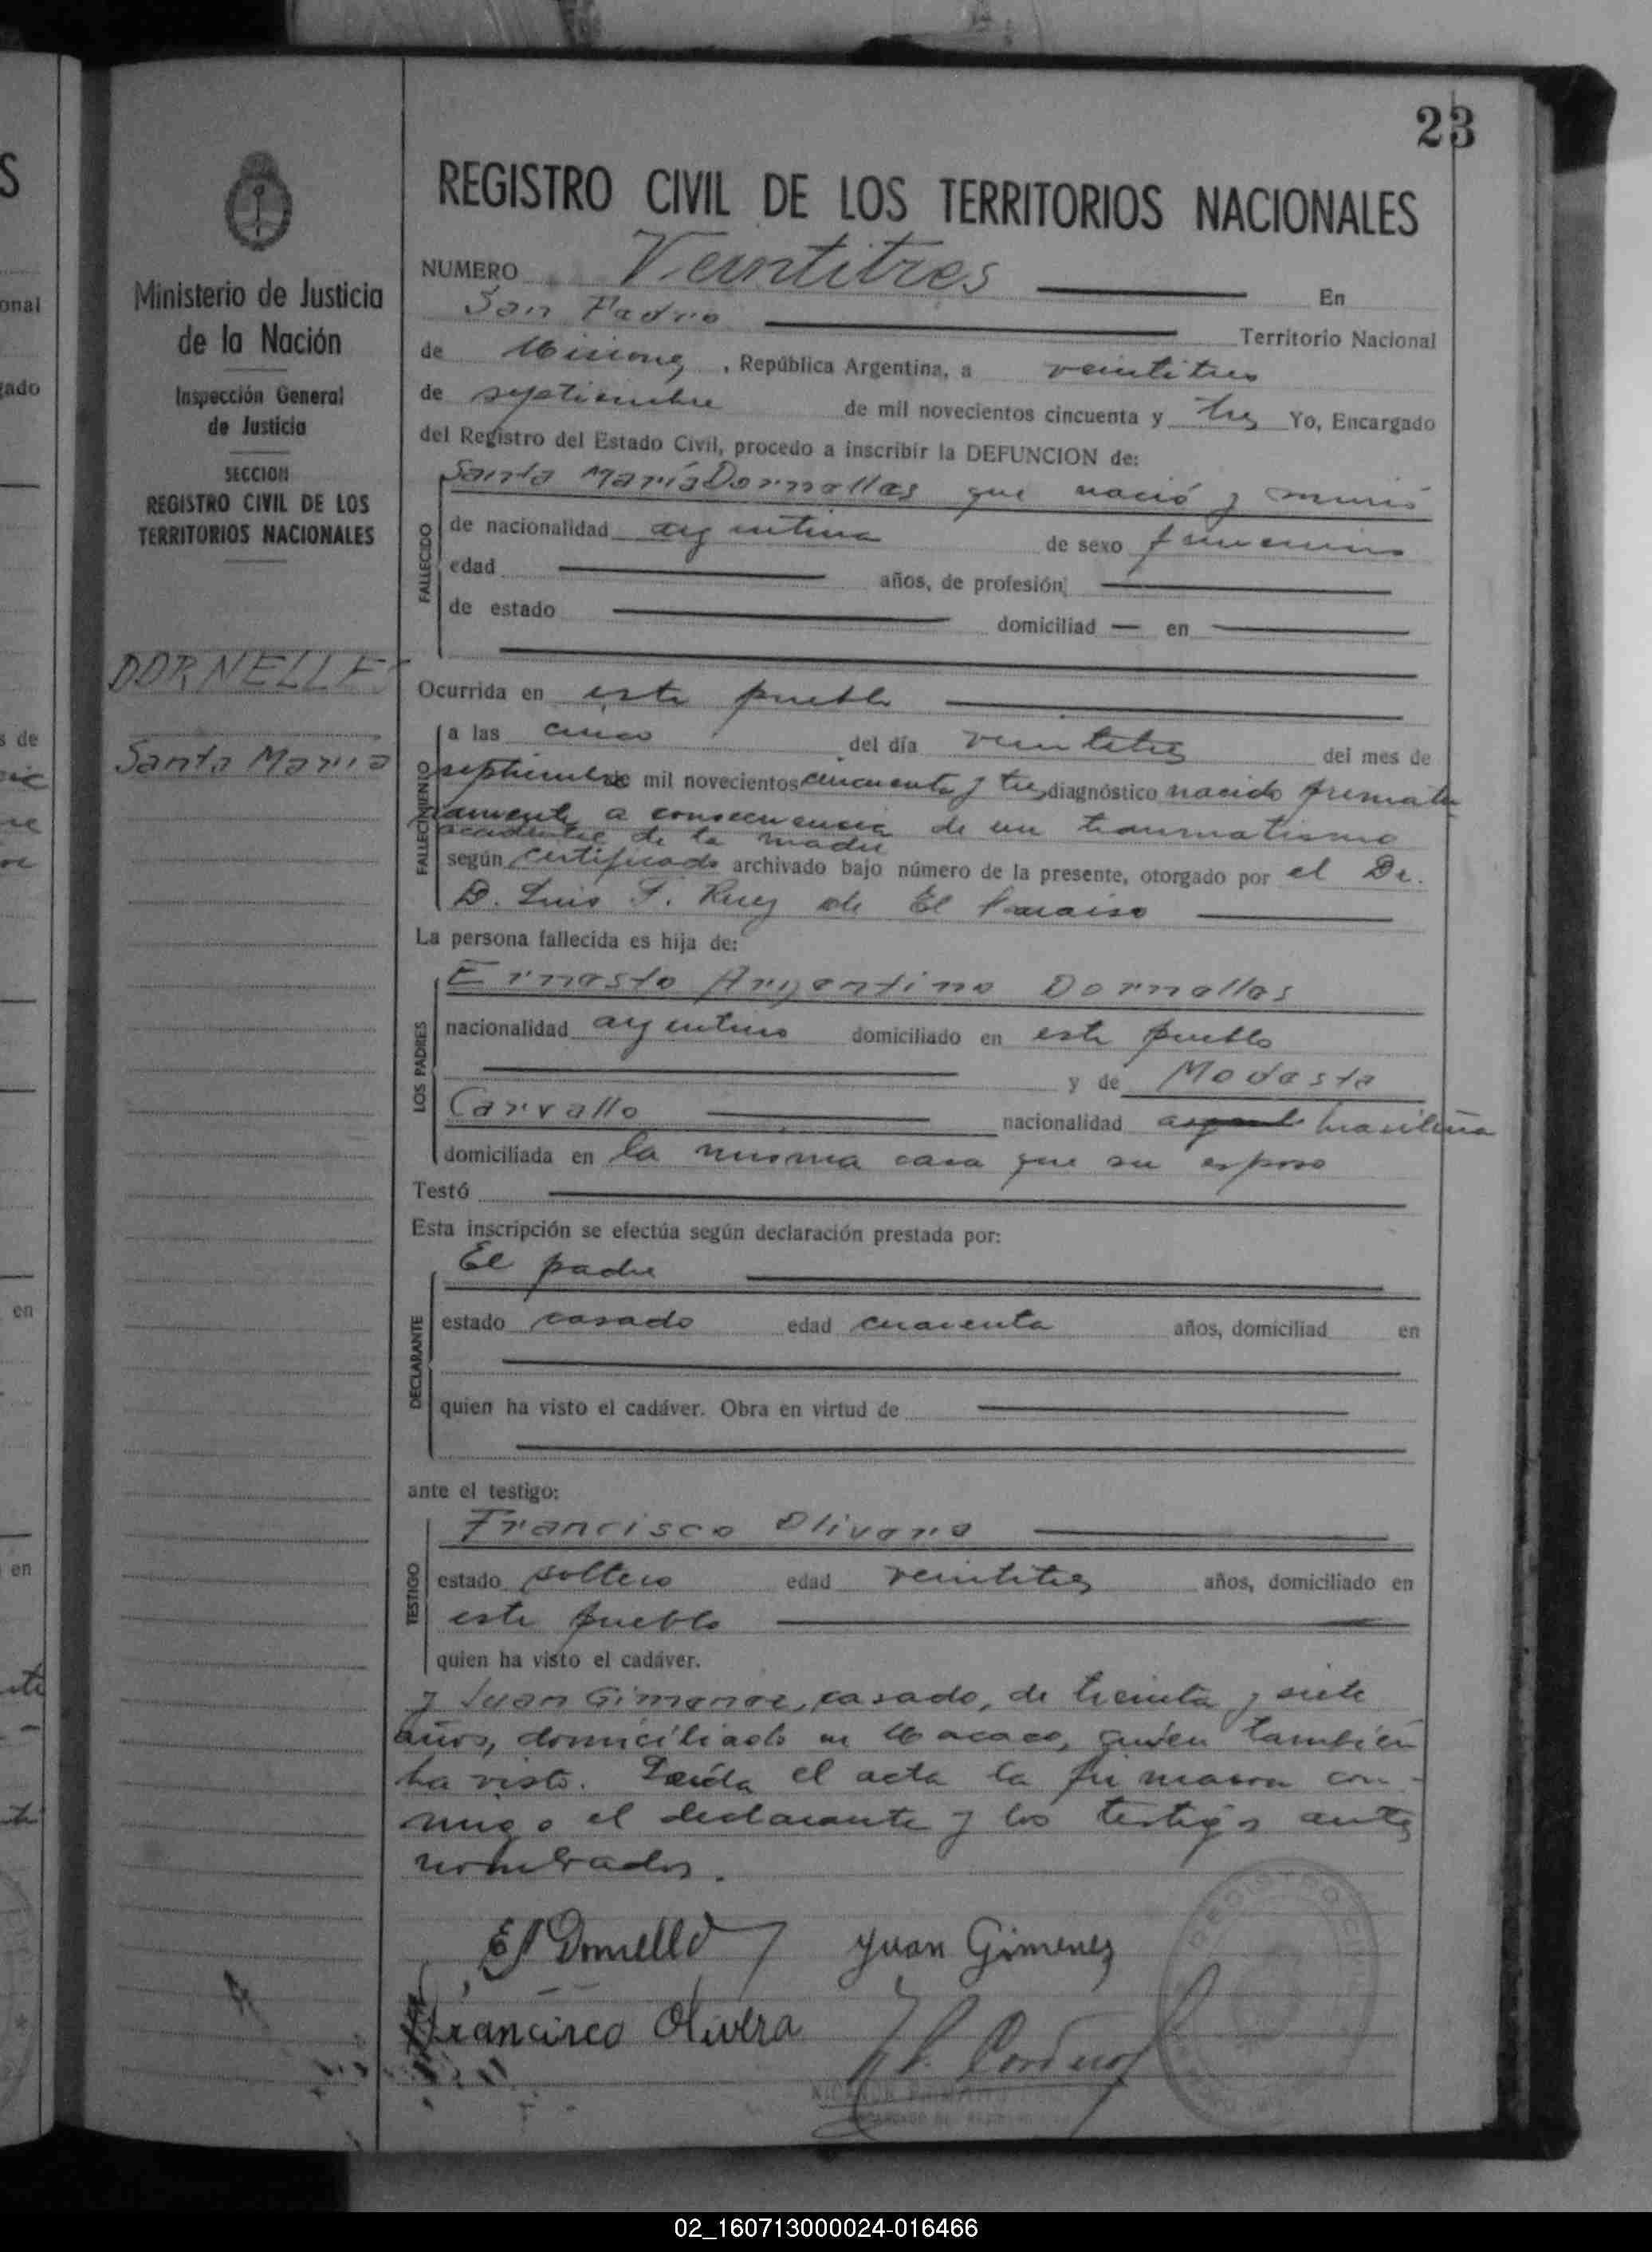 23
REGISTRO CIVIL DE LOS TERRITORIOS NACIONALES
Ministerio de Justicia
de la Nación
Inspección General
de Justicia
SECCION
REGISTRO CIVIL DE LOS
TERRITORIOS NACIONALES
DORNELLES
Santa Maria
NUMERO Veintitres En
San Pedro Territorio Nacional
de Misiones, República Argentina, a veintitres
de septiembre de mil novecientos cincuenta y tres Yo, Encargado
del Registro del Estado Civil, procedo a inscribir la DEFUNCION de:
Santa María Dornelles que nació y murió
FALLECIDO
de nacionalidad argentina de sexo femenino
edad años, de profesión
de estado domiciliad en
Ocurrida en este pueblo
FALLECIMIENTO
a las cinco del día veintitres del mes de
septiembre de mil novecientos cincuenta y tres diagnóstico nacido prematu-
ramente a consecuencia de un traumatismo
accidente de la madre
según certificado archivado bajo número de la presente, otorgado por el Dr.
D. Luis F. de El Paraiso
La persona fallecida es hija de:
LOS PADRES
Ernesto Argentino Dornelles
nacionalidad argentino domiciliado en este pueblo
y de Modesta
Carvallo nacionalidad brasileña
domiciliada en la misma casa que su esposo
Testó
Esta inscripción se efectúa según declaración prestada por:
El padre
DECLARANTE
estado casado edad cuarenta años, domiciliad en
quien ha visto el cadáver. Obra en virtud de
ante el testigo:
Francisco Olivera
TESTIGO
estado soltero edad veintitres años, domiciliado en
este pueblo
quien ha visto el cadáver.
y Juan Gimenez, casado, de treinta y siete
años, domiciliado en Macaco, quien también
ha visto. Leída el acta la firmaron con-
migo el declarante y los testigos antes
nombrados.
Juan Gimenez
Francisco Olivera
02_160713000024-016466